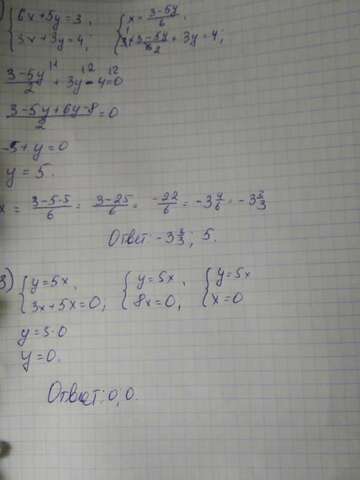 {6x+5y=3, {x=3-5y/6,
{3x+3y=4; {3·3-5y/6 2+3y=4;
3-5y/2 \1 + 3y \2 - 4 \2 =0
3-5y+6y-8/2=0
-5+y=0
y=5.
x = 3-5·5/6 = 3-25/6 = -22/6 = -3 4/6 = -3 2/3
Ответ -3 2/3; 5.
3) {y=5x, {y=5x, {y=5x
{3x+5x=0, {8x=0, {x=0
y=5·0
y=0.
Ответ: 0; 0.